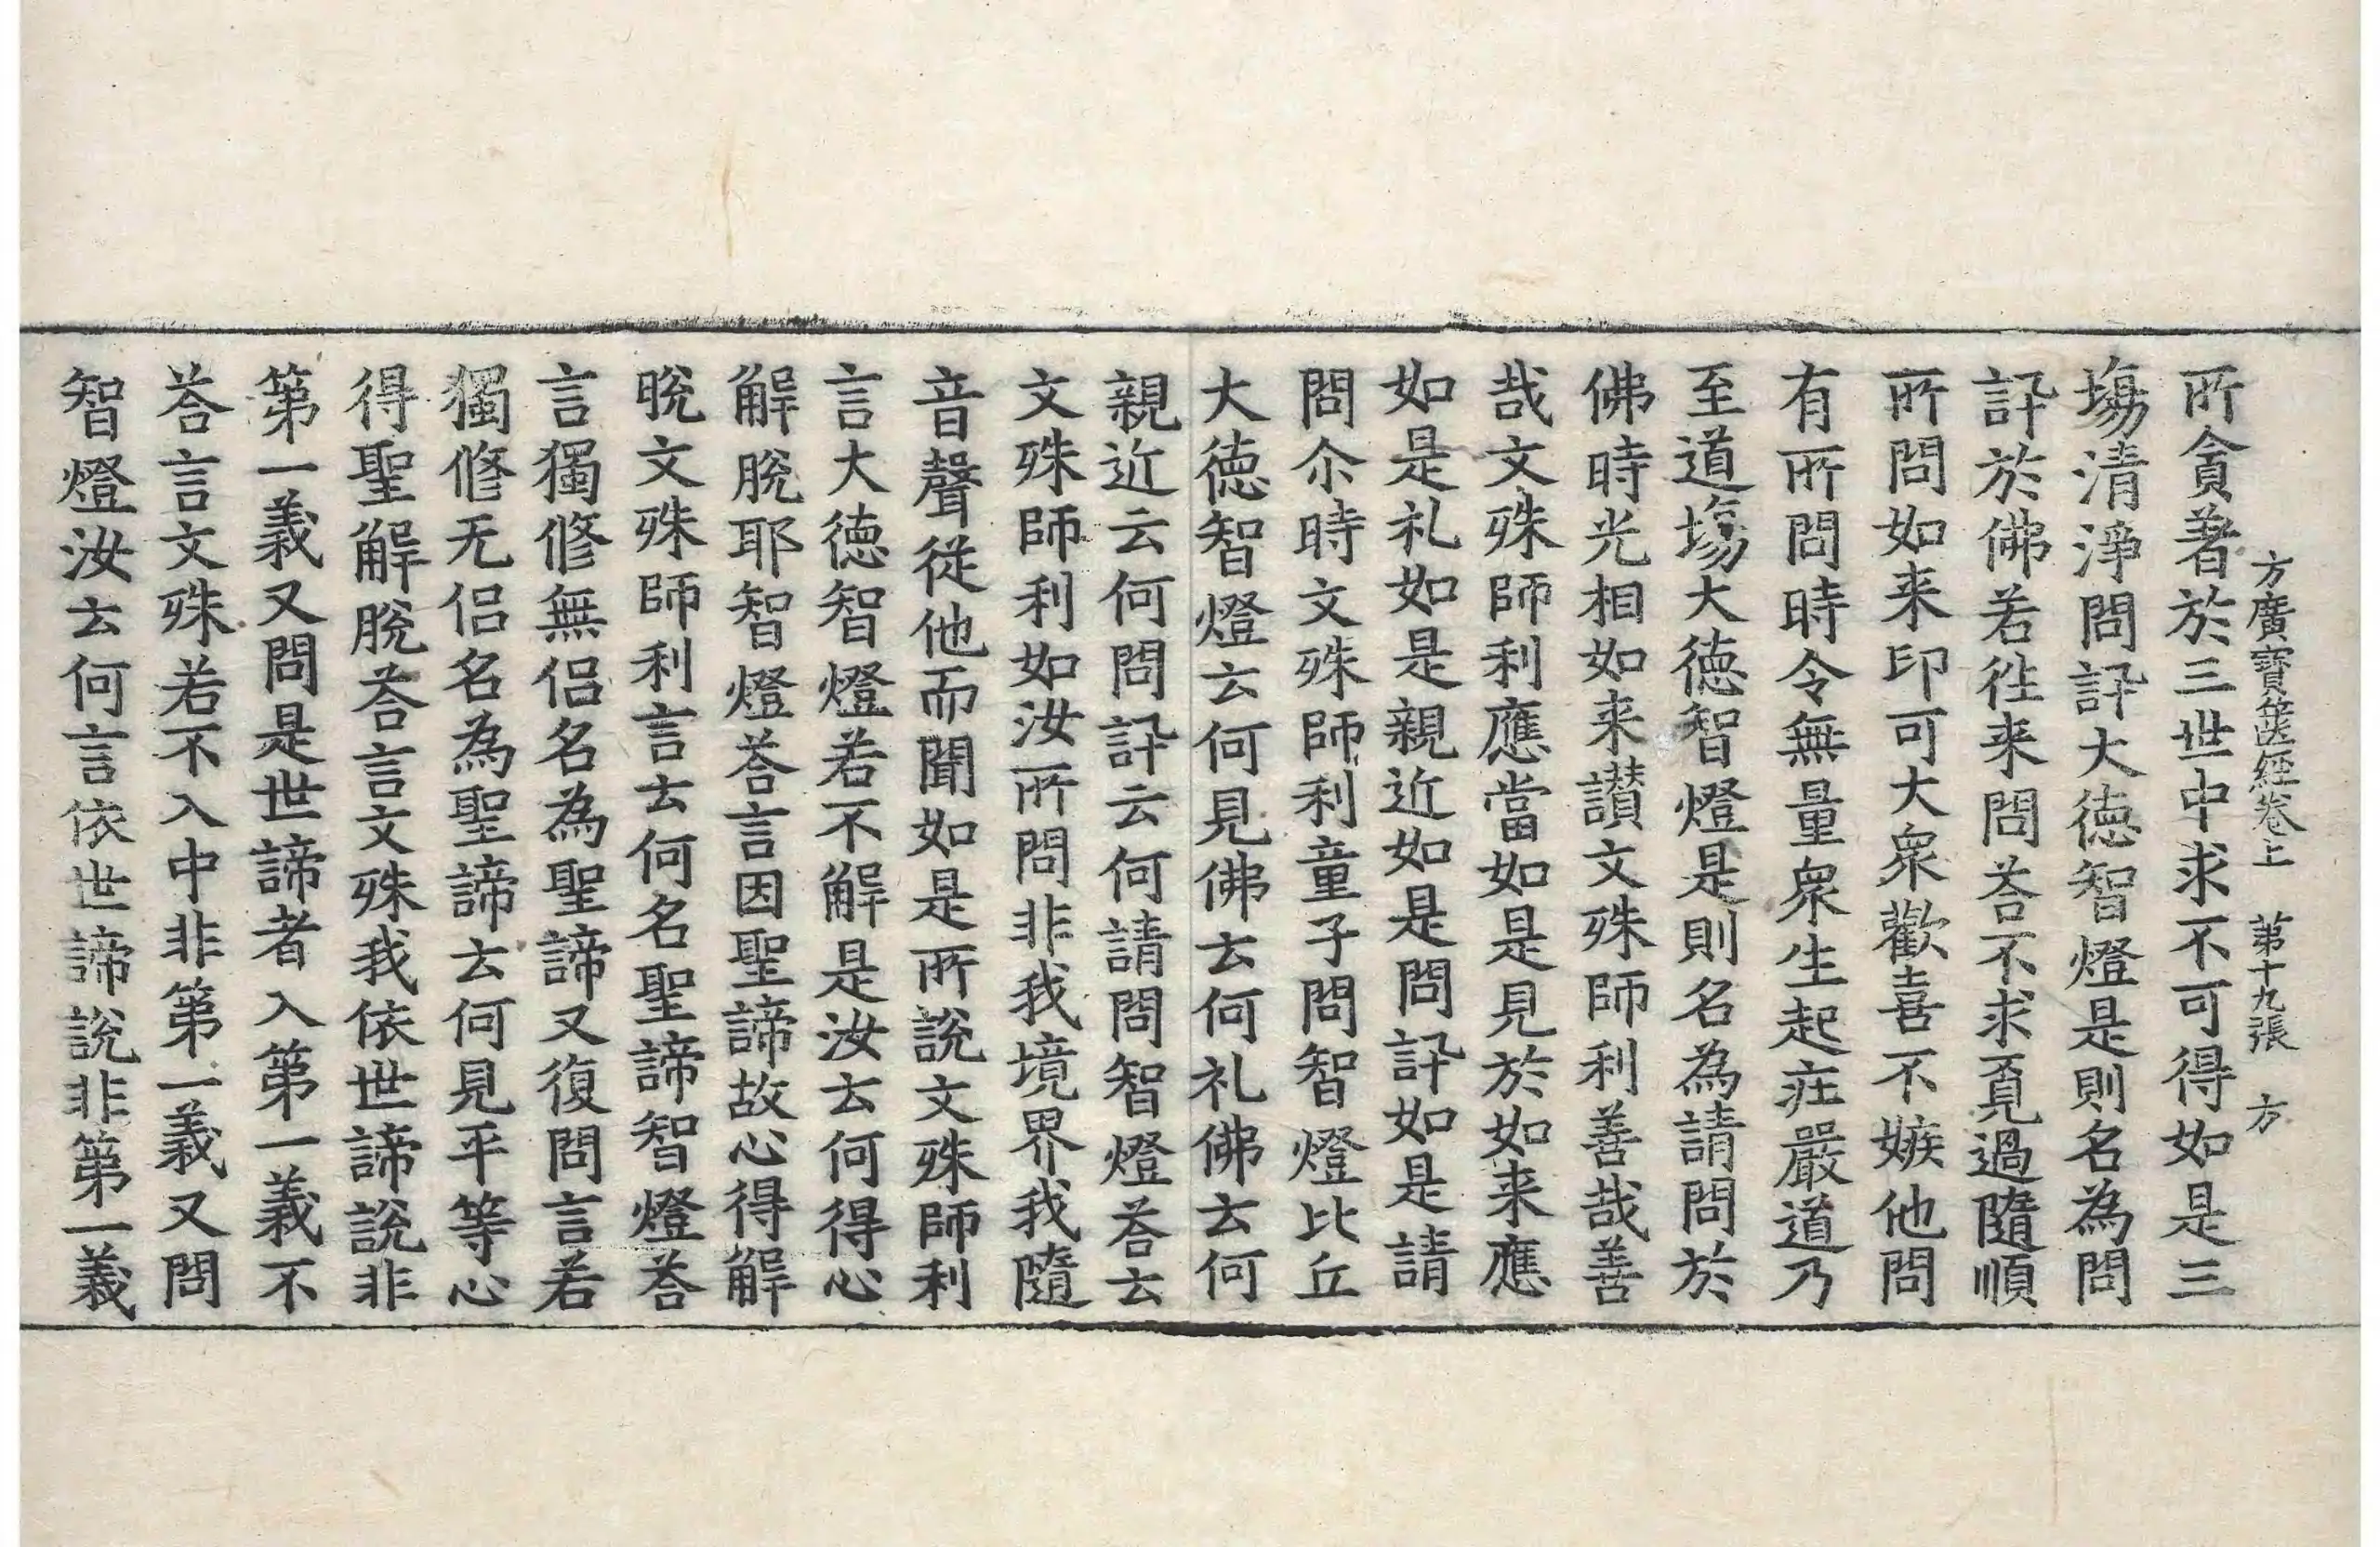 方廣寶篋經卷上　第十九張　方
所貪著於三世中求不可得如是三
塲清淨問訊大德智燈是則名為問
訊於佛若往来問荅不求覓過隨順
所問如来印可大衆歡喜不嫉他問
有所問時令無量衆生起莊嚴道乃
至道塲大德智燈是則名為請問於
佛時光相如来讃文殊師利善哉善
哉文殊師利應當如是見於如来應
如是礼如是親近如是問訊如是請
問尒時文殊師利童子問智燈比丘
大德智燈云何見佛云何礼佛云何
親近云何問訊云何請問智燈荅云
文殊師利如汝所問非我境界我隨
音聲從他而聞如是所說文殊師利
言大德智燈若不解是汝云何得心
解脫耶智燈荅言因聖諦故心得解
脫文殊師利言云何名聖諦智燈荅
言獨修無侣名為聖諦又復問言若
獨修无侣名為聖諦云何見平等心
得聖解脫荅言文殊我依世諦說非
第一義又問是世諦者入第一義不
荅言文殊若不入中非第一義又問
智燈汝云何言依世諦說非第一義